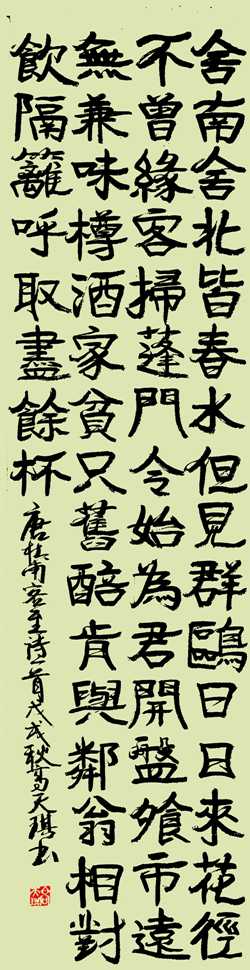 舍南舍北皆春水但見群鷗日日來花徑
不曾緣客掃蓬門今始為君開盤飧市遠
無兼味樽酒家貧只舊醅肯與鄰翁相對
飲隔籬呼取盡餘杯
唐杜甫客至詩一首戊戌秋天琪书